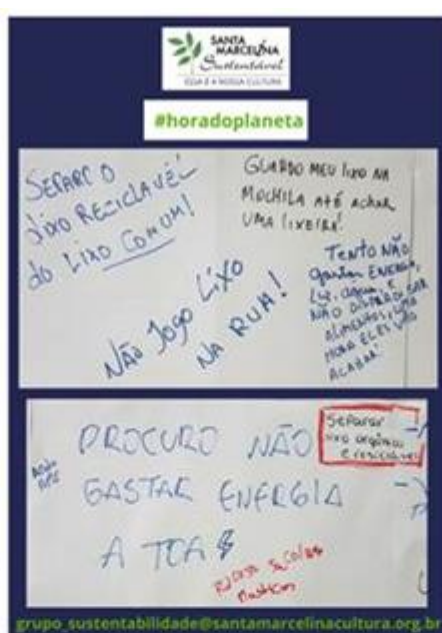 SANTA
MARCELINA
Sustentável
ESSA É A NOSSA CULTURA
#horadoplaneta
SEPARO O
LIXO RECICLÁVEL
do LIXO COMUM!
GUARDO MEU lixo NA
MOCHILA ATÉ ACHAR
UMA lixeira!
NÃO JOGO LIXO
NA RUA!
TENTO NÃO
gastar ENERGIA,
Luz, água, E
NÃO DISPERDIÇAR
ALIMENTOS, UMA
HORA ELES VÃO
ACABAR!
PROCURO NÃO
GASTAR ENERGIA
A TOA
Separar
lixo orgânico
e reciclável
grupo_sustentabilidade@santamarcelinacultura.org.br